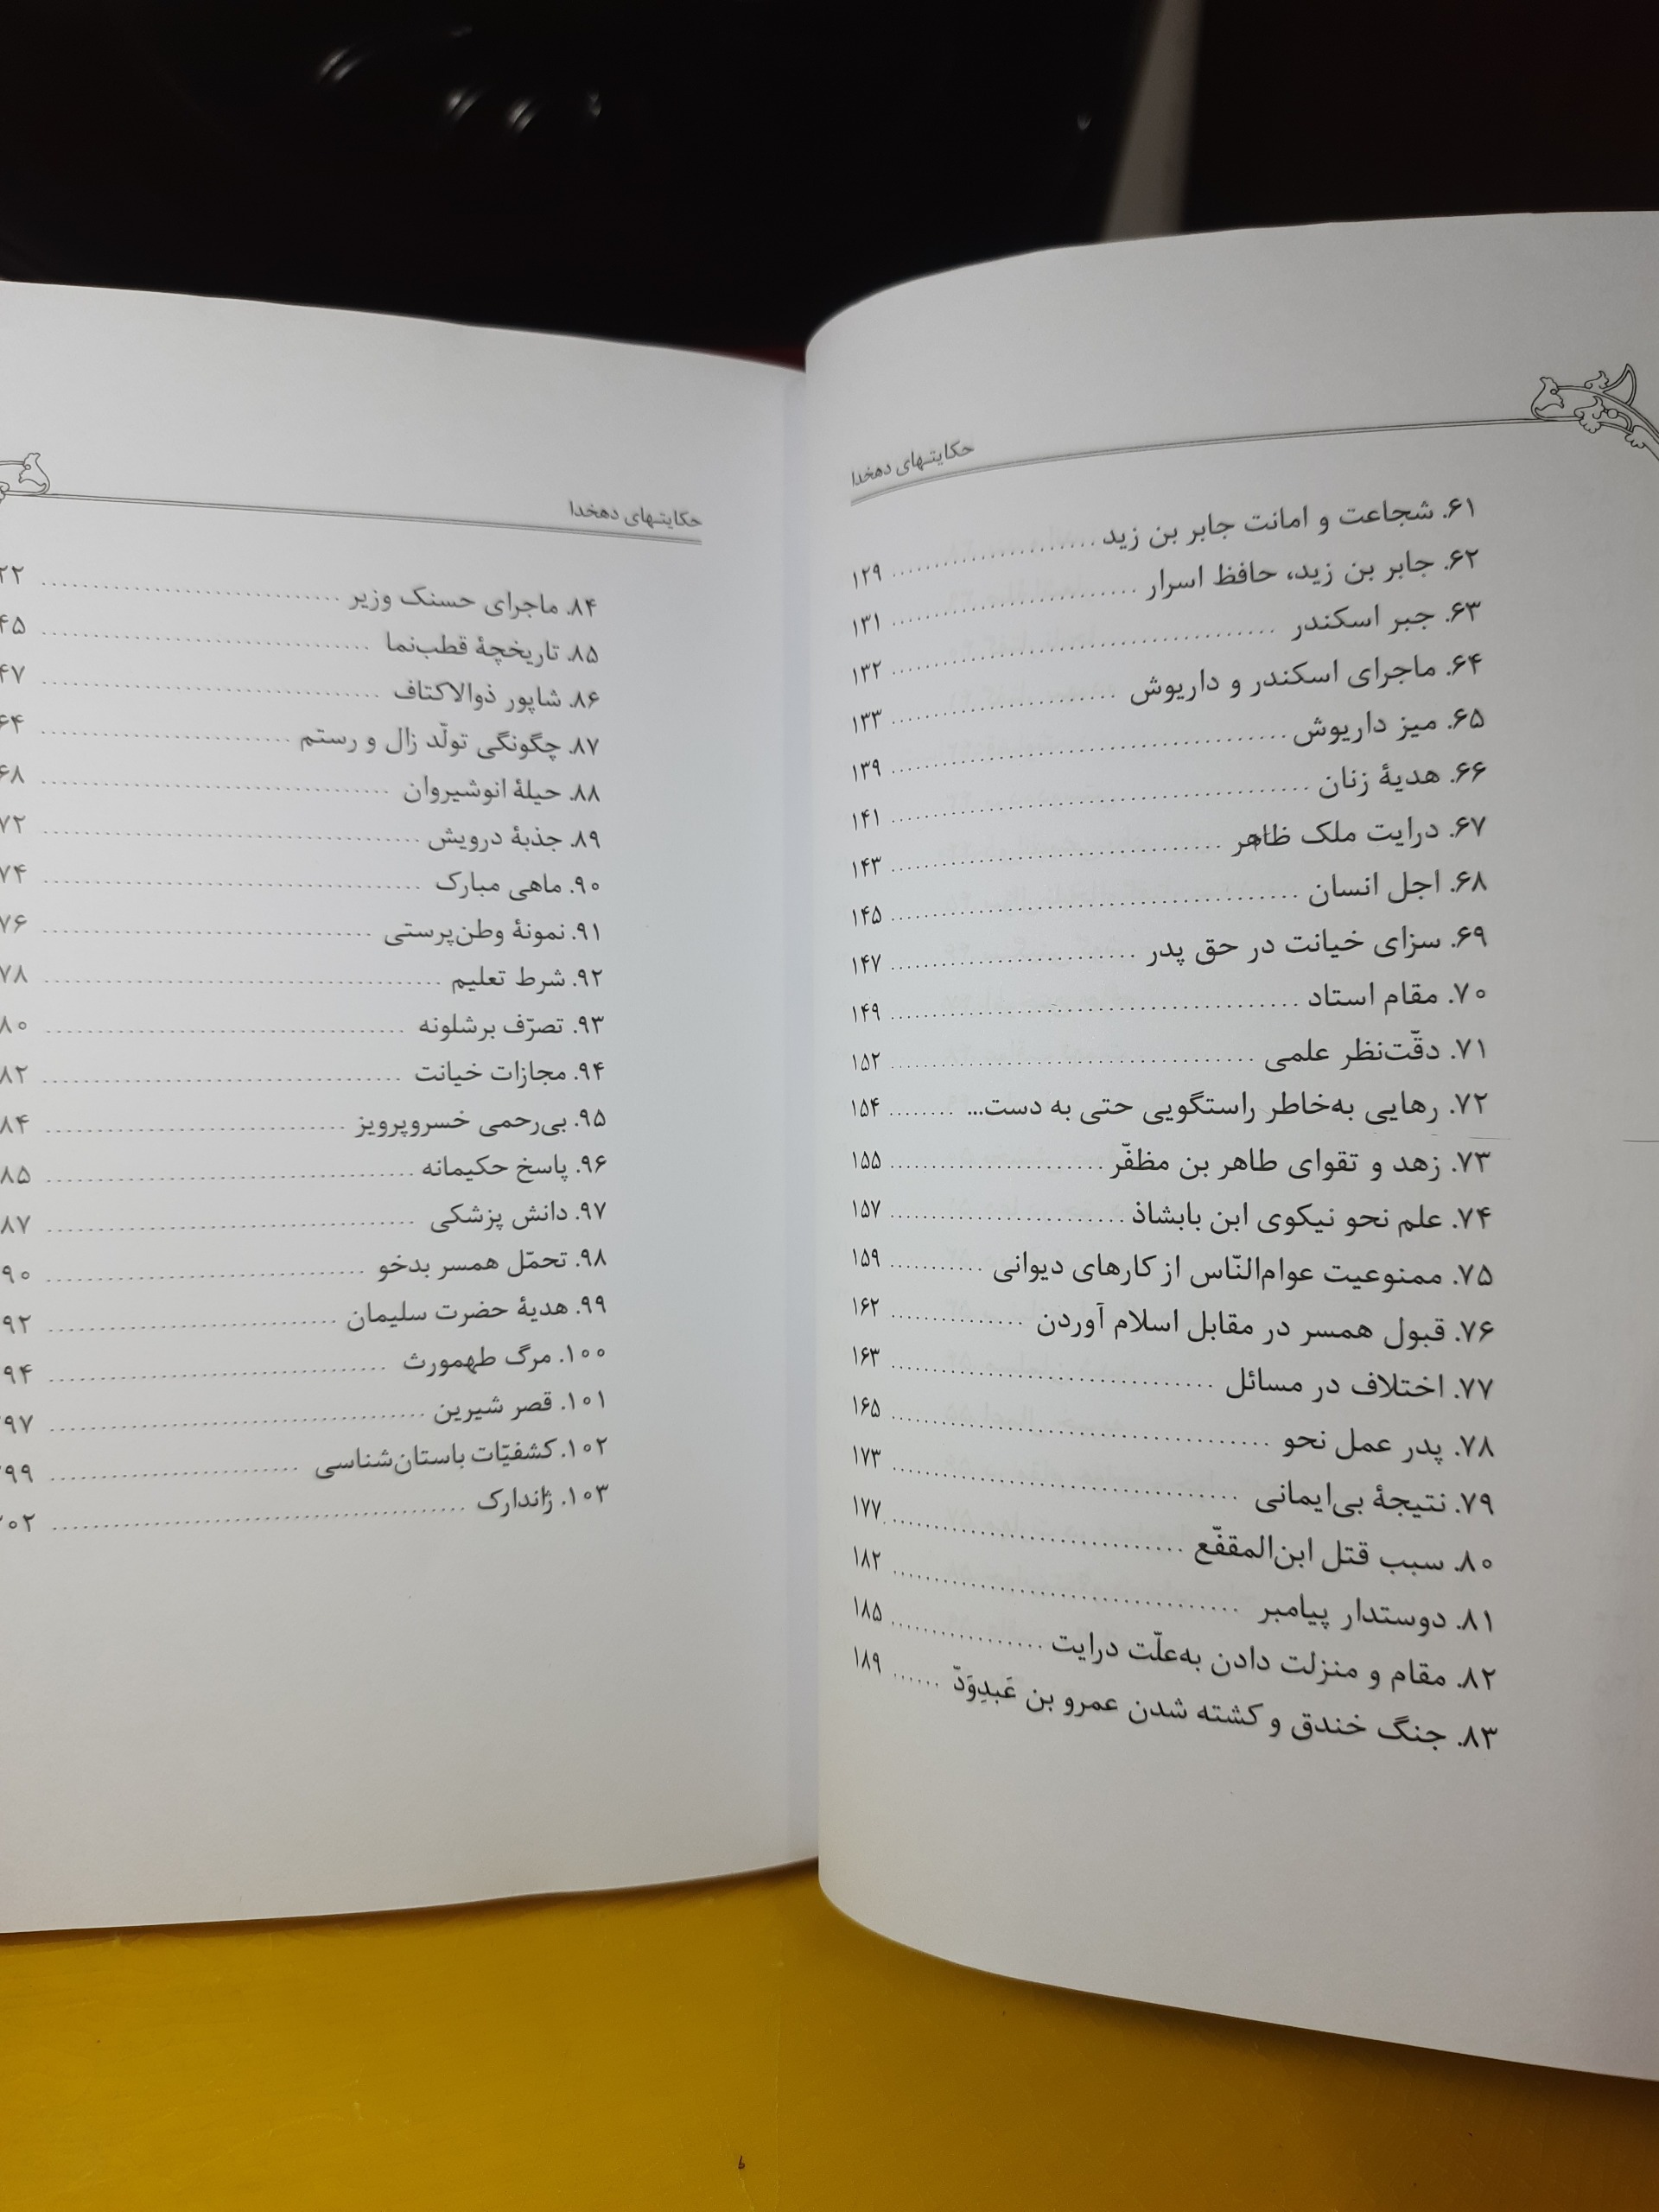 حکایتهای دهخدا
۶۱. شجاعت و امانت جابر بن زید ..................... ۱۲۹
۶۲. جابر بن زید، حافظ اسرار ......................... ۱۳۱
۶۳. جبر اسکندر ....................................... ۱۳۲
۶۴. ماجرای اسکندر و داریوش ........................ ۱۳۳
۶۵. میز داریوش ....................................... ۱۳۹
۶۶. هدیۀ زنان ......................................... ۱۴۱
۶۷. درایت ملک ظاهر ................................. ۱۴۳
۶۸. اجل انسان ......................................... ۱۴۵
۶۹. سزای خیانت در حق پدر ......................... ۱۴۷
۷۰. مقام استاد ......................................... ۱۴۹
۷۱. دقّت‌نظر علمی ..................................... ۱۵۲
۷۲. رهایی به‌خاطر راستگویی حتی به دست... ........ ۱۵۴
۷۳. زهد و تقوای طاهر بن مظفّر ....................... ۱۵۵
۷۴. علم نحو نیکوی ابن بابشاذ ......................... ۱۵۷
۷۵. ممنوعیت عوام‌النّاس از کارهای دیوانی ........... ۱۵۹
۷۶. قبول همسر در مقابل اسلام آوردن ............... ۱۶۲
۷۷. اختلاف در مسائل ................................. ۱۶۳
۷۸. پدر عمل نحو ....................................... ۱۶۵
۷۹. نتیجۀ بی‌ایمانی ................................... ۱۷۳
۸۰. سبب قتل ابن‌المقفّع ............................... ۱۷۷
۸۱. دوستدار پیامبر ................................... ۱۸۲
۸۲. مقام و منزلت دادن به‌علّت درایت ................. ۱۸۵
۸۳. جنگ خندق و کشته شدن عمرو بن عَبدِوَدّ ...... ۱۸۹
حکایتهای دهخدا
۸۴. ماجرای حسنک وزیر ............................... ۲۲
۸۵. تاریخچۀ قطب‌نما ................................... ۴۵
۸۶. شاپور ذوالاکتاف ................................... ۴۷
۸۷. چگونگی تولّد زال و رستم ......................... ۶۴
۸۸. حیلۀ انوشیروان ................................... ۶۸
۸۹. جذبۀ درویش ....................................... ۷۲
۹۰. ماهی مبارک ....................................... ۷۴
۹۱. نمونۀ وطن‌پرستی ................................. ۷۶
۹۲. شرط تعلیم ......................................... ۷۸
۹۳. تصرّف برشلونه ..................................... ۸۰
۹۴. مجازات خیانت ..................................... ۸۲
۹۵. بی‌رحمی خسروپرویز ............................... ۸۴
۹۶. پاسخ حکیمانه ..................................... ۸۵
۹۷. دانش پزشکی ....................................... ۸۷
۹۸. تحمّل همسر بدخو ................................. ۹۰
۹۹. هدیۀ حضرت سلیمان ............................... ۹۲
۱۰۰. مرگ طهمورث ..................................... ۹۴
۱۰۱. قصر شیرین ....................................... ۹۷
۱۰۲. کشفیّات باستان‌شناسی ........................... ۹۹
۱۰۳. ژاندارک ........................................... ۰۲